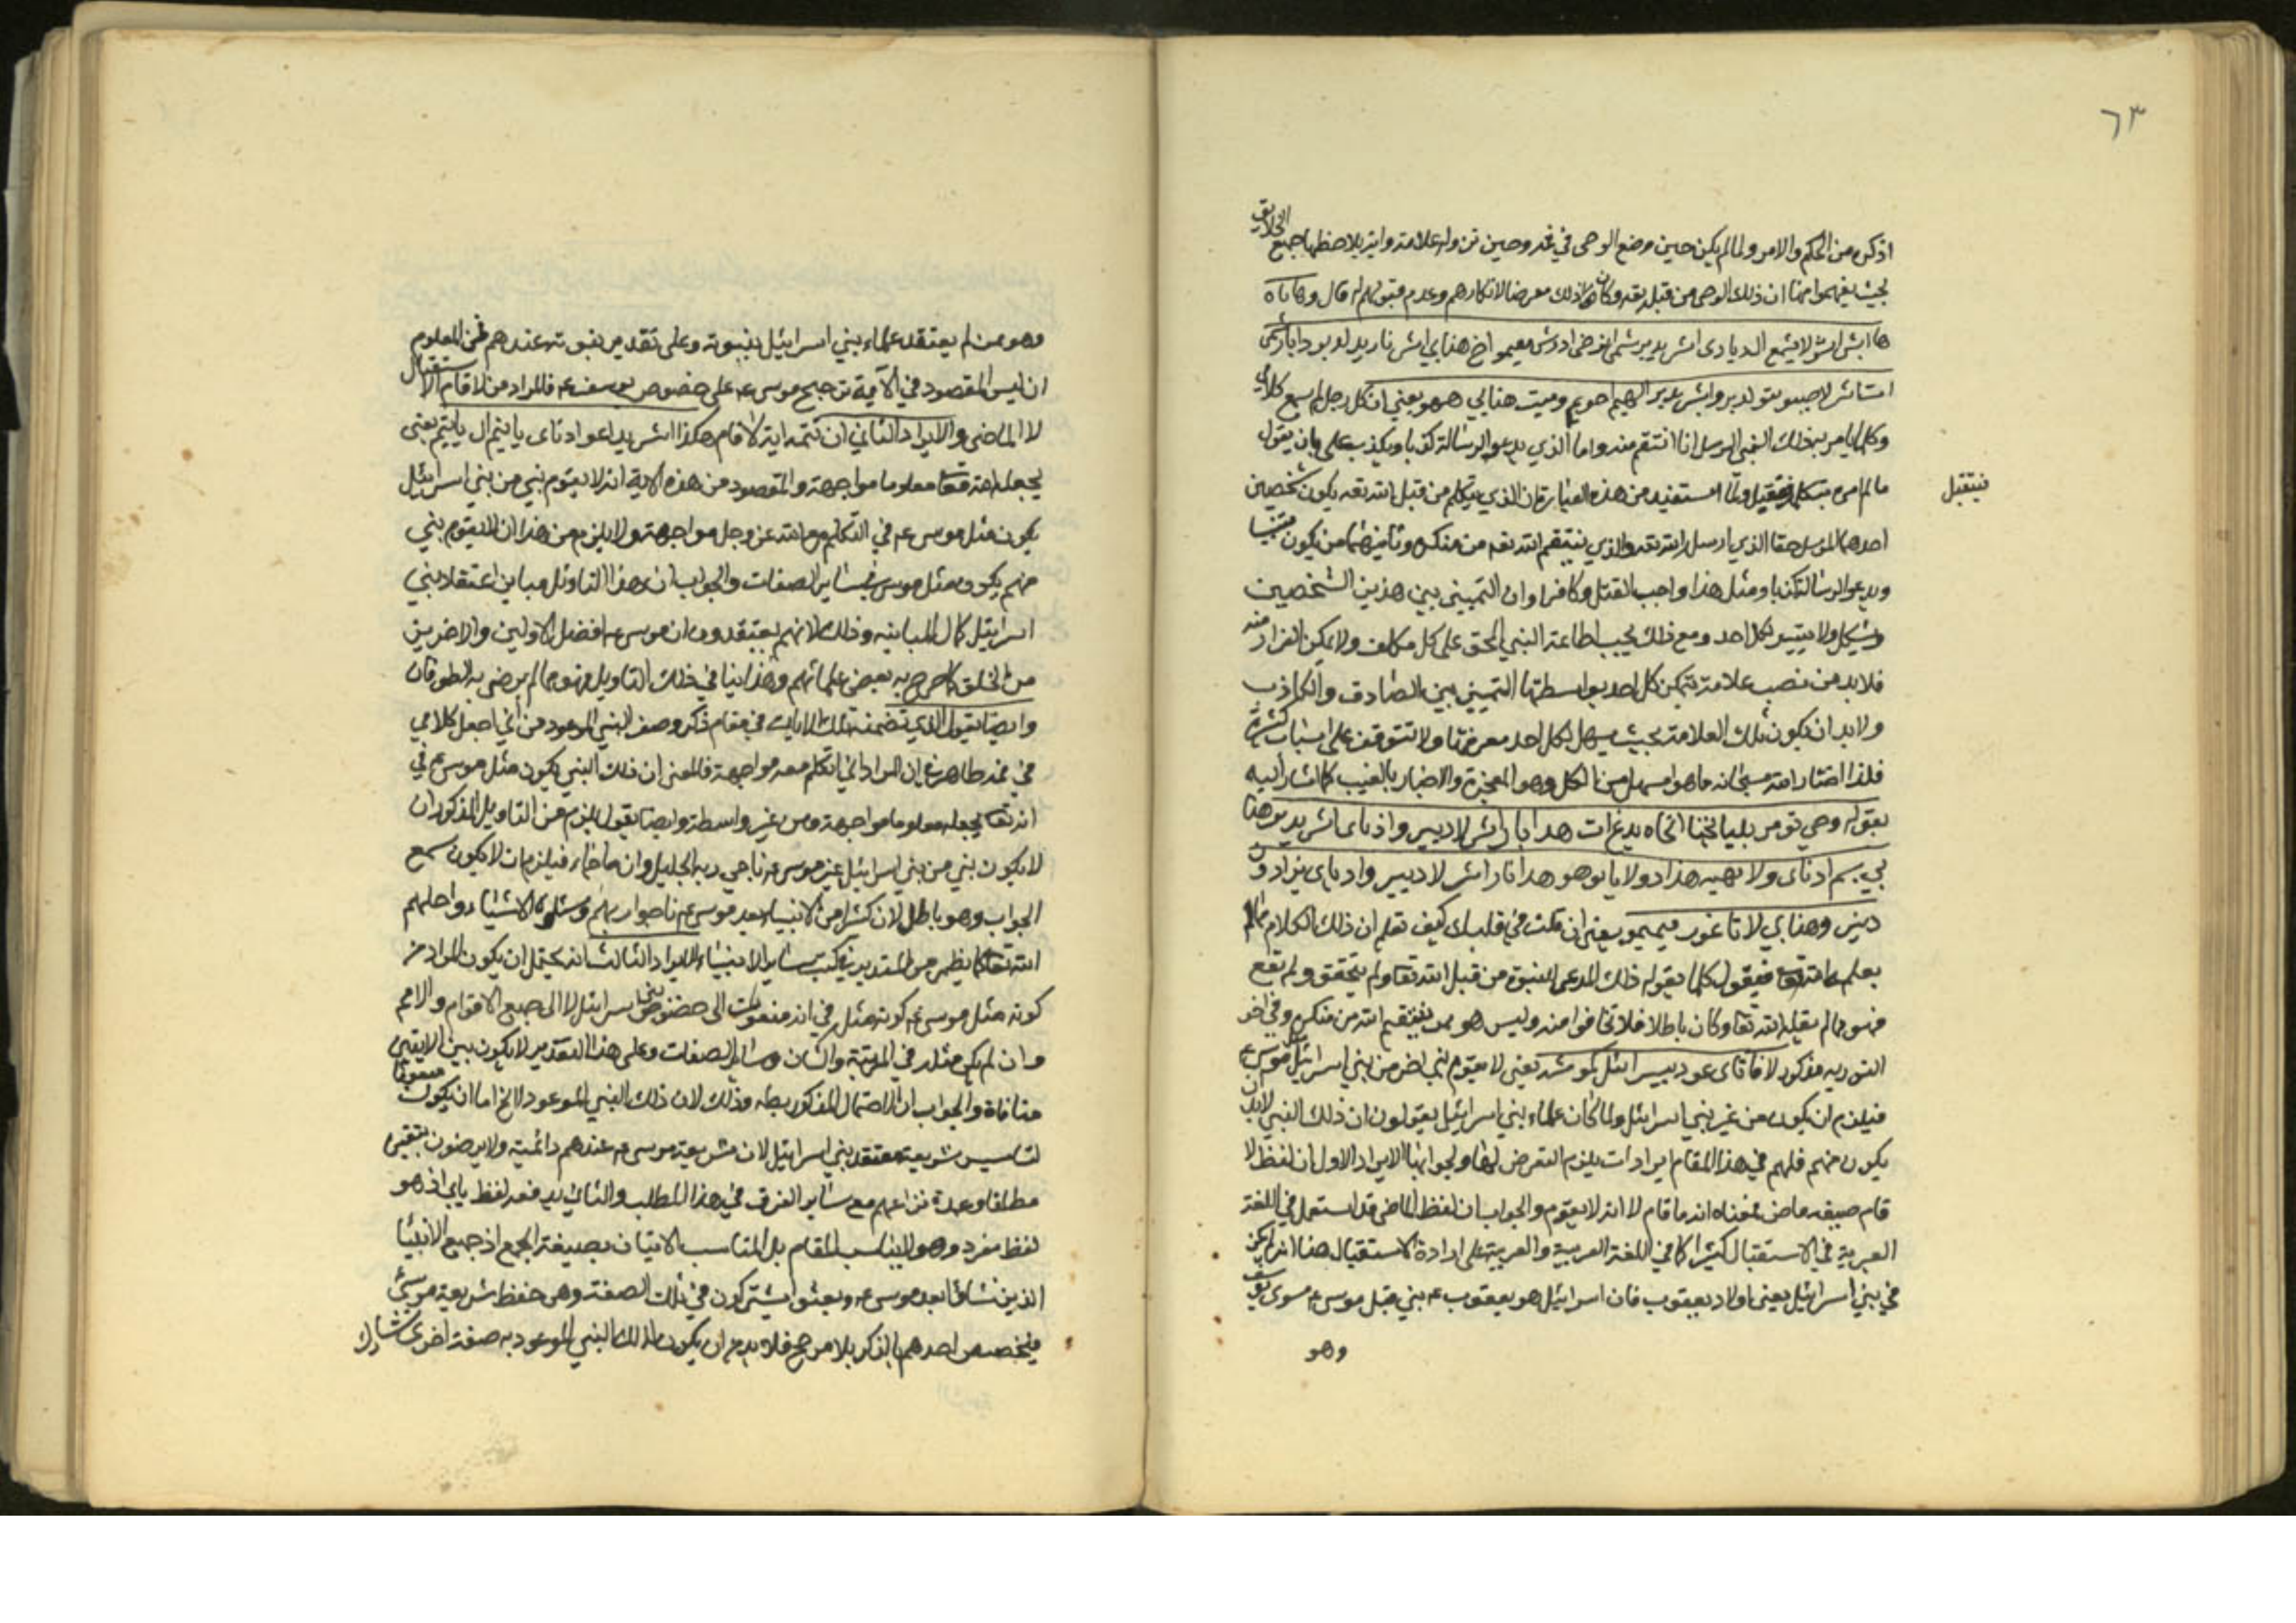 ٦٣
اذكره من الحكم والامر ولما لم يكن حين وضع الوحى في فمه وحين نزوله علامة واية يلاحظها جميع الخلايق
بحيث يفهموا منها ان ذلك الوحى من قبله تعه وكان هذا ذلك معرضا لانكارهم وعدم قبولهم له قال وهاياه
هاايش اشر لايشمع ال دبارى اشر يدبر بشمى
لدبر دابار بشمى
اشر يدبر الهيم احريم وميت هنابي ههو يعني ان كل رجل لم يسمع كلامي
وكلما يامر به ذلك النبي المرسل انا انتقم منه واما الذي يدعو الرسالة كذبا ويكذب على بان يقول
ما لم امره بتكلمه فيقتل ولما استفيد من هذه العبارة ان الذي يتكلم من قبل الله تعه يكون شخصين
فيقتل
احدهما المرسل حقا الذي ارسله الله تعه والذي ينتقم الله تعه من منكره وثانيهما من يكون متنبيا
ويدعو الرسالة كذبا ومثل هذا واجب القتل وكافرا وان التمييز بين هذين الشخصين
مشكل ولا يتيسر لكل احد ومع ذلك يجب اطاعة النبي الحق على كل مكلف ولا يمكن الفرار منه
فلا بد من نصب علامة يتمكن كل احد بواسطتها التمييز بين الصادق والكاذب
ولا بد ان يكون تلك العلامة بحيث يسهل لكل احد معرفتها ولا تتوقف على اسباب كثيرة
فلذا اختار الله سبحانه ما هو اسهل من الكل وهو المعجزة والاخبار بالغيب كما اشار اليه
بقوله وخي تومر بلبابخا اخاه يدع ات هدابار اشر لا دبير واذناى اشر يدبر هنا
بي بسم ادناى ولا يهيه هدا دولا يابو هو هدابار اشر لا دبير وادناى بزادون
دبير وهنابي لا تاغور ميميو يعني ان قلت في قلبك كيف تعلم ان ذلك الكلام مما لم
يعلمه الله تعا فيقول كلما يقوله ذلك المدعى النبوة من قبل الله تعا ولم يتحقق ولم يقع
فهو مما لم يقله الله تعا وكان باطلا فلا تخافوا منه وليس هو ممن ينتقم الله من منكره وفي اخر
التورية مذكور لا قام نابى عود بيسرائيل كموشه يعني لا يقوم نبي اخر من بني اسرائيل كموسى ع
فيلزم ان يكون من غير بني اسرائيل ولما كان علماء بني اسرائيل يقولون ان ذلك النبي لابد ان
يكون منهم فلهم في هذا المقام ايرادات يلزم التعرض لها ولجوابها الايراد الاول ان لفظ لا
قام صيغة ماض فمعناه انه ما قام لا انه لا يقوم والجواب ان لفظ الماضي قد استعمل في اللغة
العبرية في الاستقبال كثيرا كما في اللغة العربية والعربية على ارادة الاستقبال هنا انه لم يكن
في بني اسرائيل يعني اولاد يعقوب فان اسرائيل هو يعقوب ع نبي قبل موسى ع سوى يوسف
وهو
وهو ممن لم يعتقد علماء بني اسرائيل بنبوته وعلى تقدير نبوته عندهم فمن المعلوم
ان ليس المقصود في الآية ترجيح موسى ع على خصوص يوسف ع فالمراد من لا قام الاستقبال
لا الماضي والايراد الثاني ان تتمه اية لا قام هكذا اشر يداعو ادناى پانيم ال پانيم يعني
يجعله الله تعا معلوما مواجهة والمقصود من هذه الاية انه لا يقوم نبي من بني اسرائيل
يكون مثل موسى ع في التكلم مع الله عز وجل مواجهة ولا يلزم من هذا ان لا يقوم نبي
منهم يكون مثل موسى في ساير الصفات والجواب ان هذا التاويل مباين اعتقاد بني
اسرائيل كمال المباينه وذلك لانهم يعتقدون ان موسى ع افضل الاولين والاخرين
من الخلق كما صرح به بعض علمائهم وهذا ينافي ذلك التاويل فهو مما لم يرض به الطرفان
وايضا نقول الذي تضمنته تلك الايات في مقام ذكر وصف النبي الموعود من أني اجعل كلامي
في فمه ظاهر في ان المراد اني اتكلم معه مواجهة فالمعنى ان ذلك النبي يكون مثل موسى ع في
انه تعا يجعله معلوما مواجهة ومن غير واسطة وايضا نقول يلزم من التاويل المذكور ان
لا يكون نبي من بني اسرائيل غير موسى ع ناجى ربه الجليل وان ما خاه فيلزم ان لا يكون سمع
الجواب وهو باطل لان كثيرا من الانبياء بعد موسى ع ناجوا ربهم وسئلوه الاشياء واجابهم
الله تعا كما يظهر من المتدبر في كتب ساير الانبياء الايراد الثالث انه يحتمل ان يكون المراد من
كونه مثل موسى ع كونه مثله في انه مبعوث الى خصوص بني اسرائيل لا الى جميع الاقوام والامم
وان لم يكن مثله في المرتبة والشان وساير الصفات وعلى هذا التقدير لا يكون بين الايتين
منافاة والجواب ان الاحتمال المذكور بطه وذلك لان ذلك النبي الموعود لا يخ اما ان يكون مبعوثا
لتاسيس شريعة معتقد بني اسرائيل لان شريعة موسى ع عندهم دائمية ولا يرضون بتغييره
مطلقا وعمدة نزاعهم مع ساير الفرق في هذا المطلب والثاني يدفعه لفظ نابى اذ هو
لفظ مفرد وهو لا يناسب المقام بل المناسب الاتيان بصيغة الجمع اذ جميع الانبيا
الذين نشاؤا بعد موسى ع وبعثوا يشتركون في تلك الصفة وهى حفظ شريعة موسى ع
فيتخصص احدهم بالذكر بلا مرجح فلا بد من ان يكون لذلك النبي الموعود به صفة اخرى تشارك